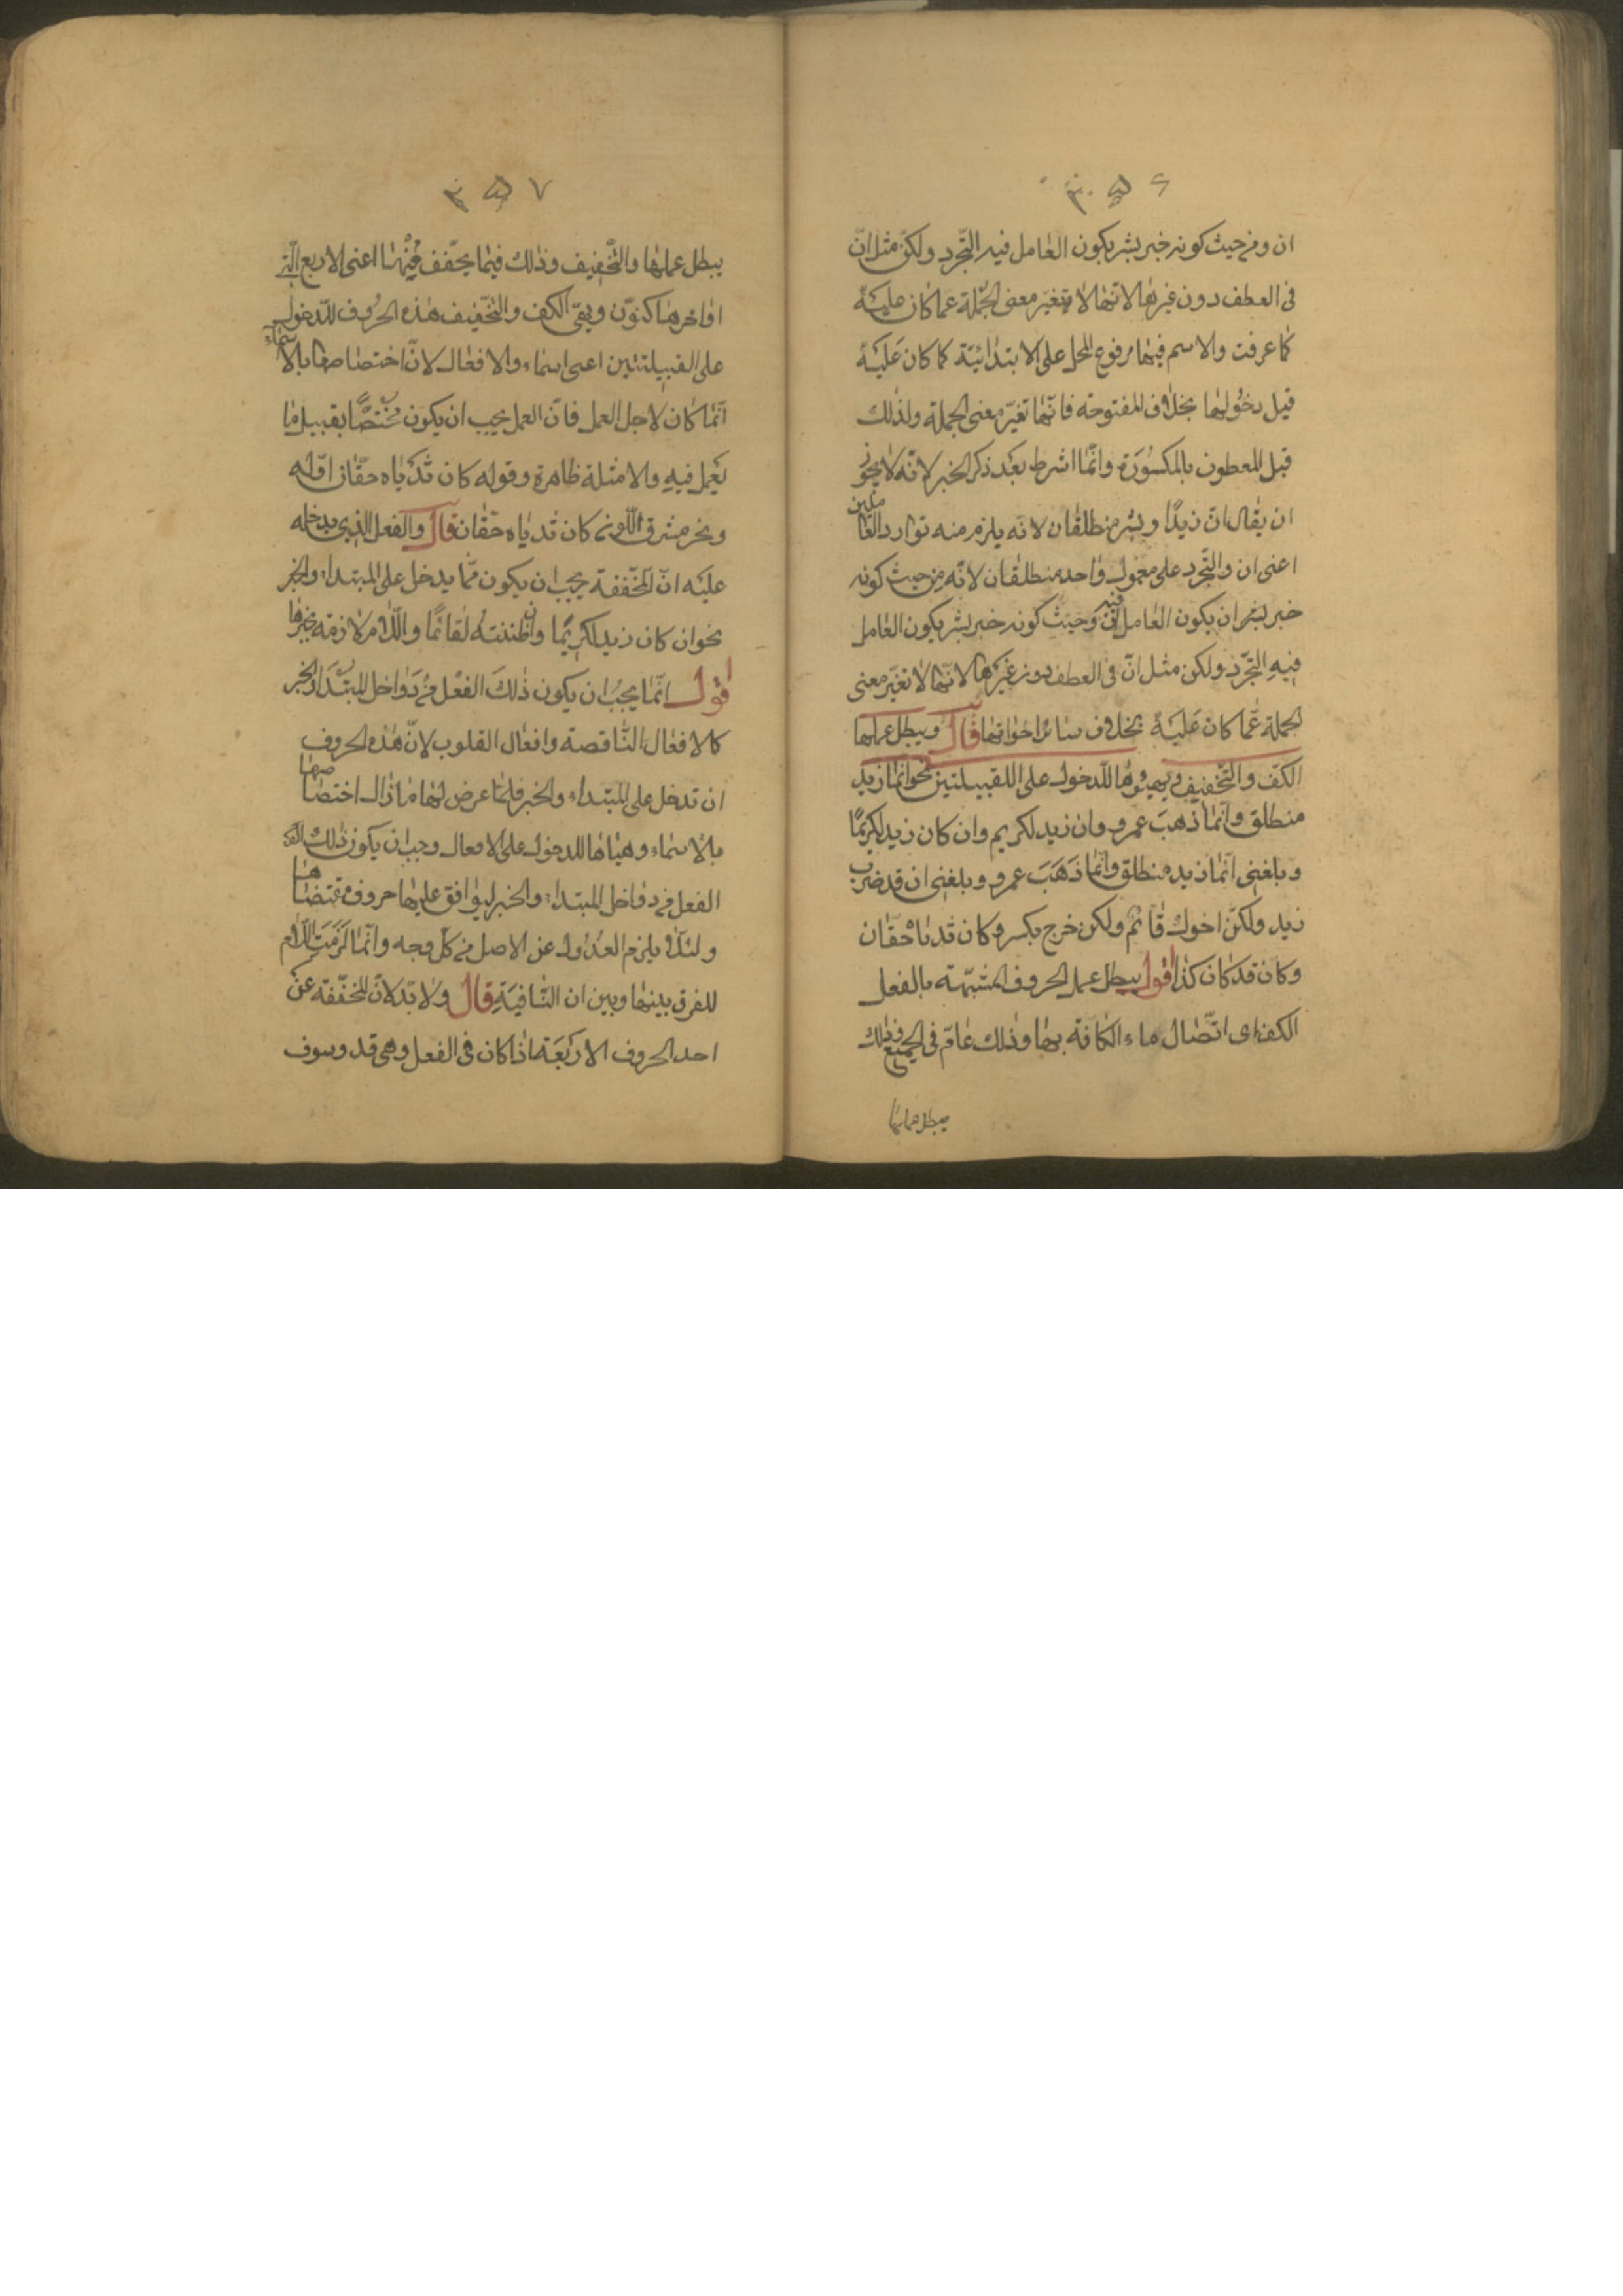 ان ومن حيث كونه خبر بشر يكون العامل فيه التجرد ولكنّ مثل انّ
فى العطف دون غيرها لانها لا يتغيّر معنى الجملة عما كان عليه
كما عرفت والاسم فيها مرفوع المحل على الابتدائيّة كما كان عَليَه
قبل دخُولها بخلاف المفتوحة فانّها تغيّر معنى الجملة ولذلك
قبل المعطون بالمكسُورَة وانّما اشرط بَعْد ذكر الخبر لانّه لا يجوز
ان يقال انّ زيدًا وبشر منطلقان لانه يلزم منه توارد العاملين
اعنى ان والتّجرد على معمول واحد منطلقان لانّه من حيث كونه
خبر لبشر ان يكون العامل فيه وحيث كونه خبر بشر يكون العامل
فيهِ التجرّد ولكن مثل انّ فى العطف دون غيَرها لانّها لا تغيّر معنى
الجملة عَّما كان عَليَهْ بخلاف سائر اخواتها قال ويبطل عملها
الكفّ والتّخفيف ويهيئوها للدخول على اللقبيلتين نحو انّما زيد
منطلق وانّما ذهبَ عمرو وان زيد لكريم وان كان زيد لكريمًا
وبلغنى انّما زيد منطلق وانّما ذَهَبَ عمرو وبلغنى ان قد ضرب
زيد ولكنّ اخوك قائم ولكن خرج بكر وكان ثدياه حُقّان
وكان قد كان كذا اقول يبطل عمل الحروف المشبّهة بالفعل
الكف اى اتّصال ماء الكافة بها وذلك عامّ فى الجميع وذلك
يبطل عملها
يبطل عملها والتّخفيف وذلك فيما يخفّف فيها اعنى الاربع الّتى
اواخرها كنوّن ويقى الكف والتّخفيف هذه الحرُوف للدخول
على القبيلتين اعنى اسماء والافعال لانّ اختصاصها بالاسماء
انّما كان لاجل العمل فانّ العمل يجب ان يكون مُختصًّا بقبيل ما
يَعمل فيهِ والامثلة ظاهرة وقوله كان ثديَاه حقّان اوّله
ونحر مشرق اللّون كان ثدياه حقان قال والفعل الذى يدخله
عليَه انّ المخفّفة يجب ان يكون ممّا يدخل على المبتداء والخبر
نحو ان كان زيد لكريمًا وان ظننتهُ لقائمًا واللّام لازمة بخبرها
اقول انّما يجبُ ان يكون ذلكَ الفعْل من دَواخل المبتدَا والخبر
كالافعال النّاقصة وافعال القلوب لانّ هذه الحروف
ان تدخل على المبتداء والخبر فلمّا عرض لها ما ازال اختصاصها
بالاسماء وهيّاها للدخول على الافعال وجب ان يكون ذلك
الفعل من دواخل المبتداء والخبر ليوافق عليها حروف مقتضاها
ولئلّا يلزم العدُول عن الاصل من كلّ وجه وانّما لَزمَتِ اللّام
للفرق بينها وبين ان النّافيَةِ قال ولابّد لانّ المخفّفة عن
احد الحروف الاربَعَة اذا كان فى الفعل وهى قد وسوف